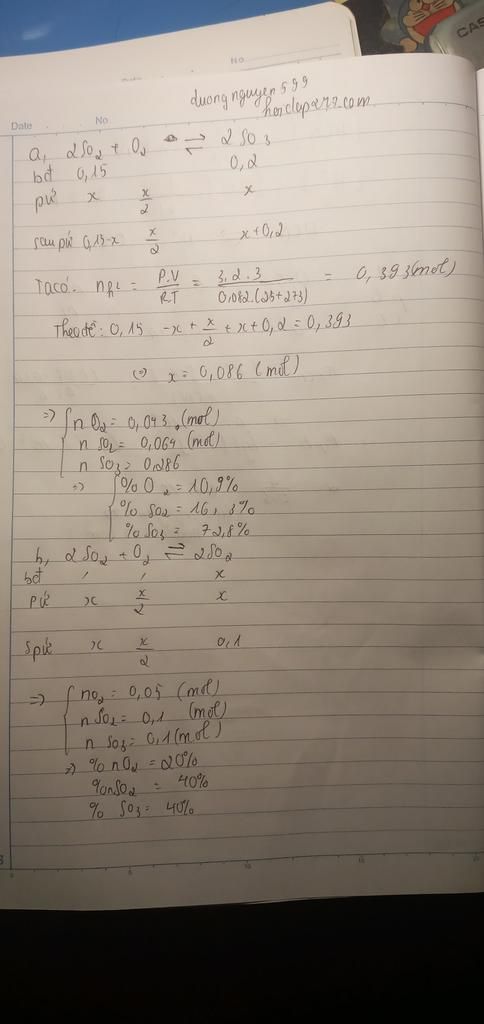 No
CAS
duongnguyen599
hoclap247.com
Date No
a, 2SO2 + O2 ⇌ 2SO3
bđ 0,15 0,2
pứ x x/2 x
sau pứ 0,15-x x/2 x+0,2
Ta có: nhh = P.V/RT = 3,2.3/0,082.(25+273) = 0,393(mol)
Theo đề: 0,15 -x + x/2 + x+0,2 = 0,393
(=) x = 0,086 (mol)
=> { nO2 = 0,043 (mol)
n SO2 = 0,064 (mol)
n SO3 = 0,286
=> { %O2 = 10,9%
% SO2 = 16,3%
% SO3 = 72,8%
b, 2SO2 + O2 ⇌ 2SO2
bđ , , x
pứ x x/2 x
Spứ x x/2 0,1
=> { nO2 = 0,05 (mol)
n SO2 = 0,1 (mol)
n SO3 = 0,1(mol)
=> % nO2 = 20%
%nSO2 = 40%
% SO3 = 40%